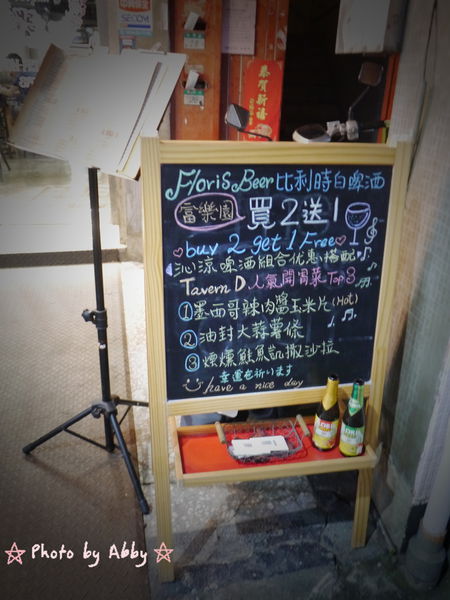 SECOM
恭賀新禧
Floris Beer 比利時白啤酒
富樂園 買2送1
buy 2 get 1 Free
沁涼啤酒組合优惠搭配
Tavern D 人氣開胃菜 Top 3
①墨西哥辣肉醬玉米片(Hot)
②油封大蒜薯條
③煙燻鮭魚凱撒沙拉
幸運を祈います
have a nice day
Photo by Abby